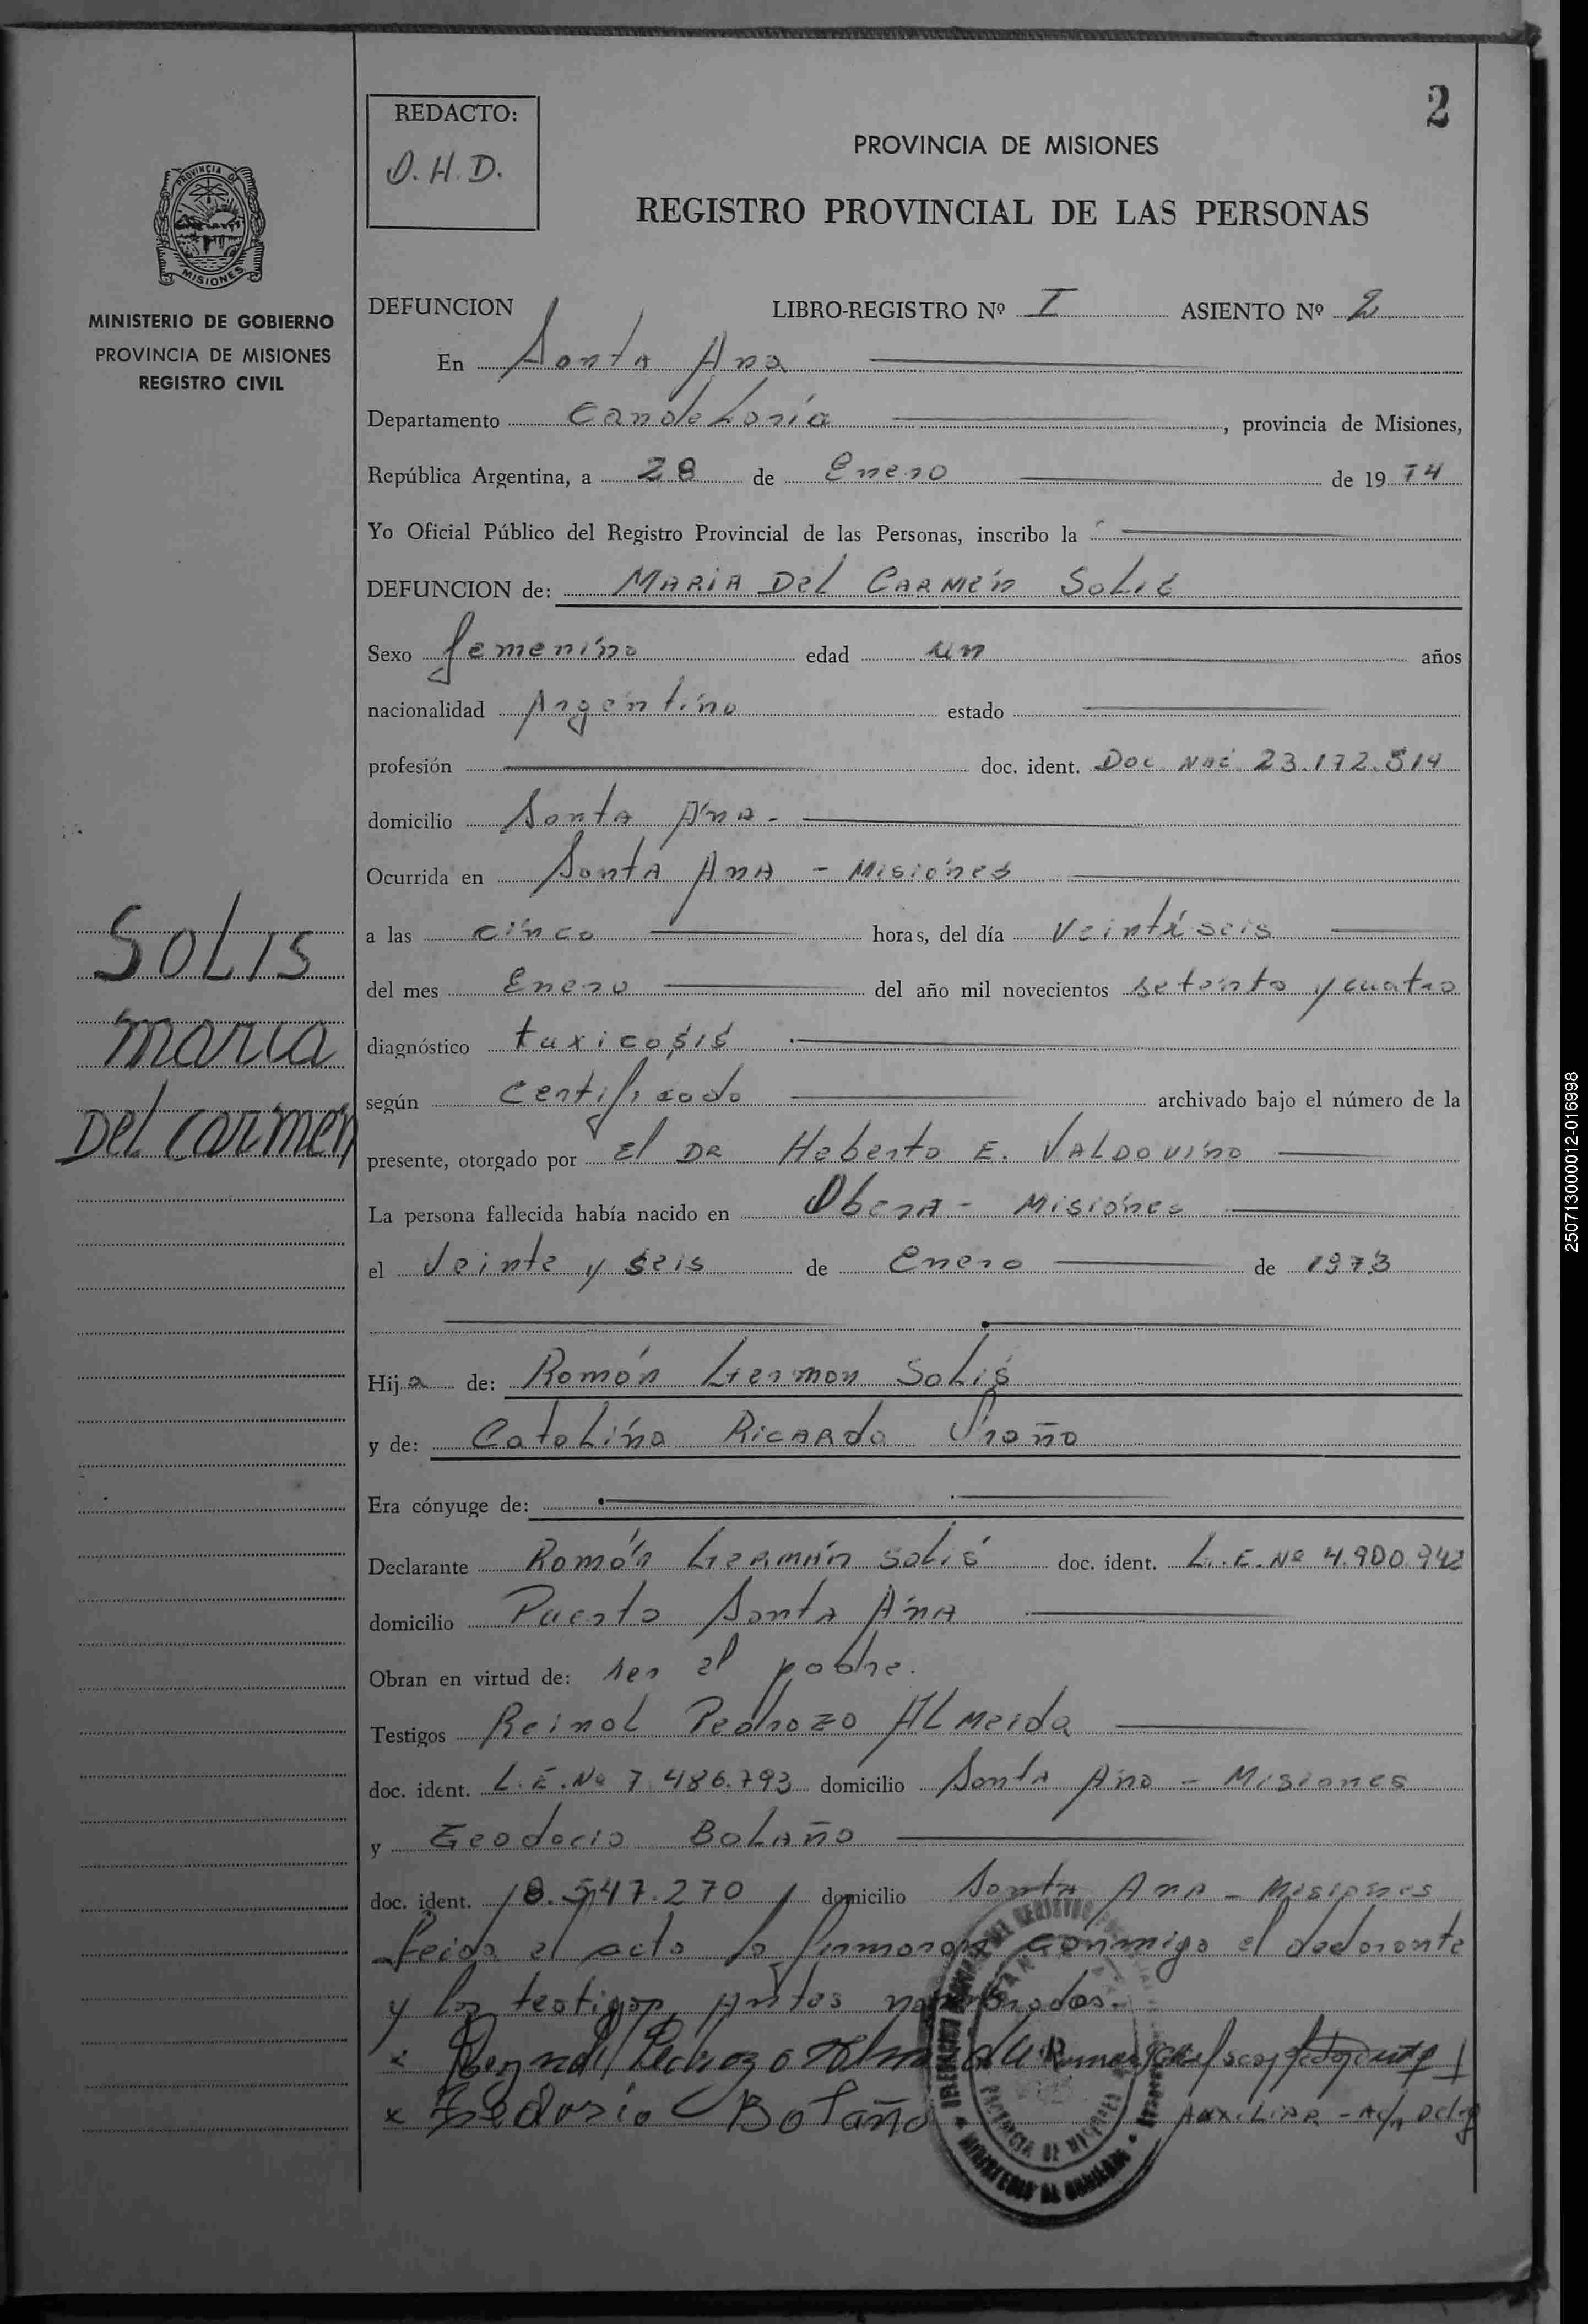 2
REDACTO:
O. H. D.
PROVINCIA DE MISIONES
REGISTRO PROVINCIAL DE LAS PERSONAS
PROVINCIA DE
MISIONES
MINISTERIO DE GOBIERNO
PROVINCIA DE MISIONES
REGISTRO CIVIL
SOLIS
maria
Del Carmen
DEFUNCION LIBRO-REGISTRO Nº I ASIENTO Nº 2
En Santa Ana
Departamento Candelaria, provincia de Misiones,
República Argentina, a 28 de Enero de 1974
Yo Oficial Público del Registro Provincial de las Personas, inscribo la
DEFUNCION de: MARIA Del CARMEN SOLIS
Sexo femenino edad un años
nacionalidad Argentina estado
profesión doc. ident. Doc. Nac. 23.172.514
domicilio Santa Ana -
Ocurrida en Santa Ana - Misiones
a las cinco horas, del día Veintiseis
del mes Enero del año mil novecientos setenta y cuatro
diagnóstico tuxicosis
según Certificado archivado bajo el número de la
presente, otorgado por El DR Heberto E. VALDOVINO
La persona fallecida había nacido en Obera - Misiones
el Veinte y seis de Enero de 1973
Hija de: Román German Solis
y de: Catalina Ricarda
Era cónyuge de:
Declarante Román GERMÁN Solis doc. ident. L. E. Nº 4.900.942
domicilio Puerto Santa Ana
Obran en virtud de: ser el padre.
Testigos Reinol Pedrozo ALMeida
doc. ident. L. E. Nº 7.486.793 domicilio Santa Ana - Misiones
y Teodocio Bolaño
doc. ident. 8.547.270 domicilio Santa Ana - Misiones
Leida el acta la firmaran conmigo el declarante
y los testigos, antes nombrados.
x Reynol Pedrozo
x Teodosio Bolaño
AUXILIAR - A/c Deleg
PROVINCIA DE MISIONES
2507130000012-016998